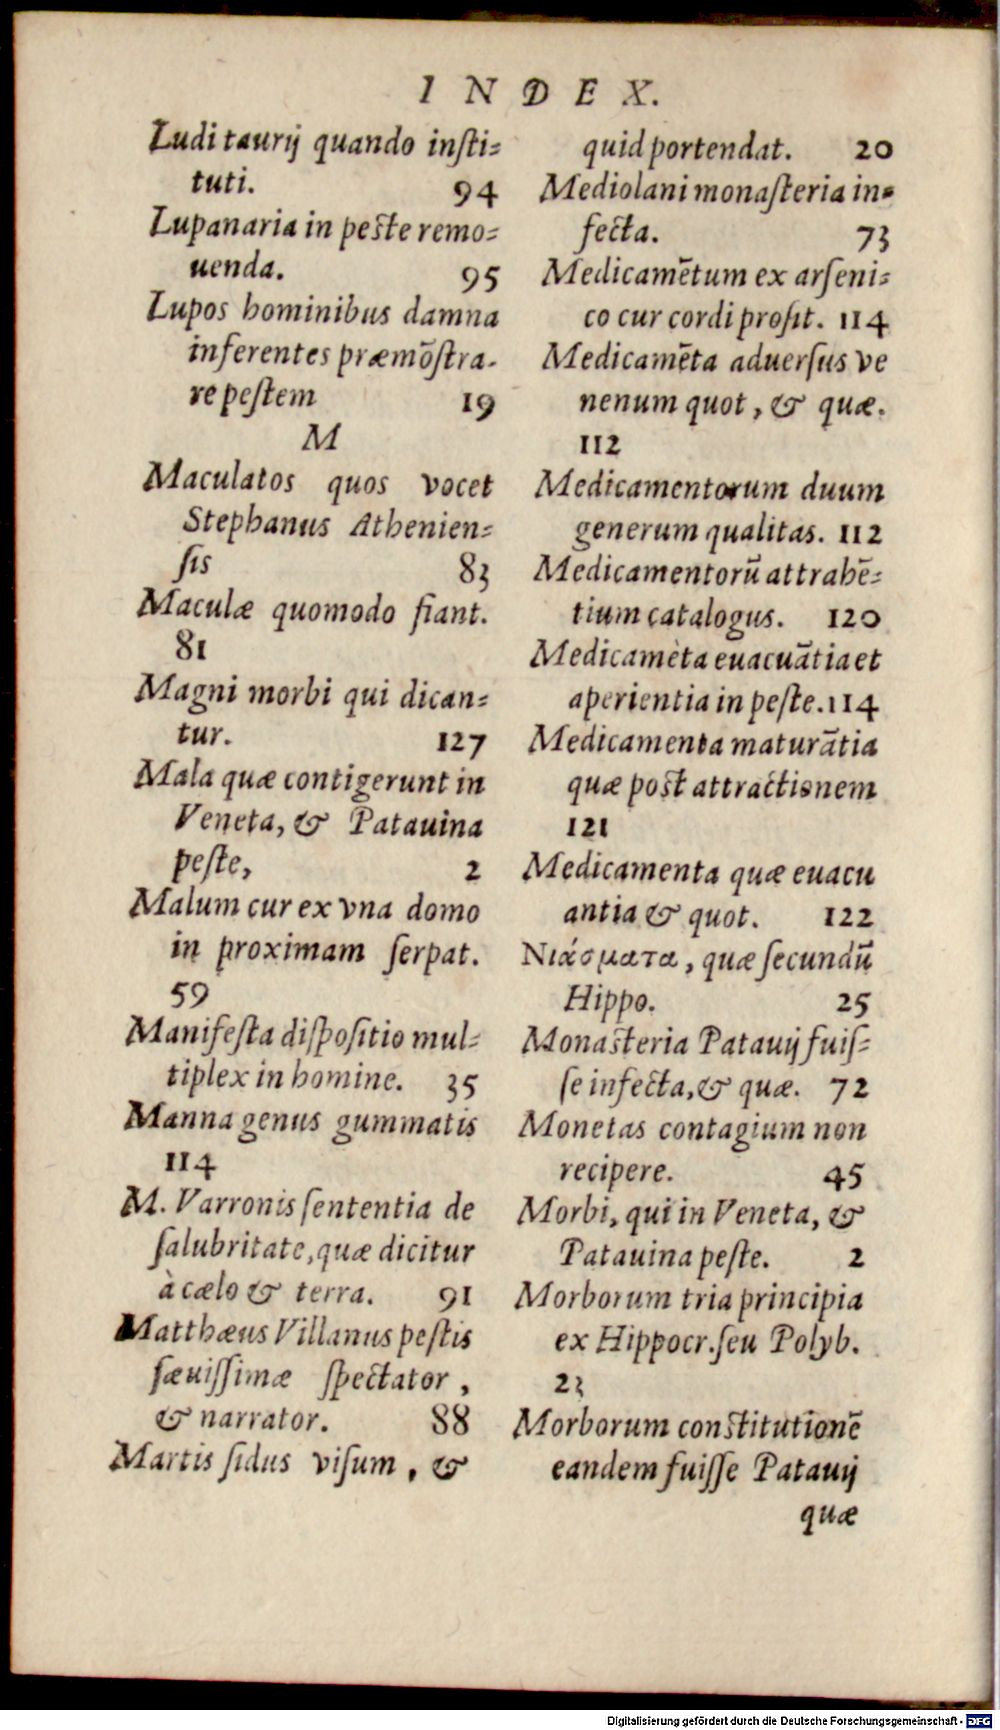 INDEX.
Ludi taurij quando insti=
tuti. 94
Lupanaria in peste remo=
uenda. 95
Lupos hominibus damna
inferentes præmõstra-
re pestem 19
M
Maculatos quos vocet
Stephanus Athenien=
sis 83
Maculæ quomodo fiant.
81
Magni morbi qui dican=
tur. 127
Mala quæ contigerunt in
Veneta, & Patauina
peste, 2
Malum cur ex vna domo
in proximam serpat.
59
Manifesta dispositio mul=
tiplex in homine. 35
Manna genus gummatis
114
M. Varronis sententia de
salubritate, quæ dicitur
à cælo & terra. 91
Matthæus Villanus pestis
sæuissimæ spectator,
& narrator. 88
Martis sidus visum, &
quid portendat. 20
Mediolani monasteria in=
fecta. 73
Medicamẽtum ex arseni=
co cur cordi prosit. 114
Medicamẽta aduersus ve
nenum quot, & quæ.
112
Medicamentorum duum
generum qualitas. 112
Medicamentorũ attrahẽ=
tium catalogus. 120
Medicamẽta euacuãtia et
aperientia in peste. 114
Medicamenta maturãtia
quæ post attractionem
121
Medicamenta quæ euacu
antia & quot. 122
Νιάσματα, quæ secundũ
Hippo. 25
Monasteria Patauij fuis=
se infecta, & quæ. 72
Monetas contagium non
recipere. 45
Morbi, qui in Veneta, &
Patauina peste. 2
Morborum tria principia
ex Hippocr. seu Polyb.
23
Morborum constitutionẽ
eandem fuisse Patauij
quæ
Digitalisierung gefördert durch die Deutsche Forschungsgemeinschaft - DFG